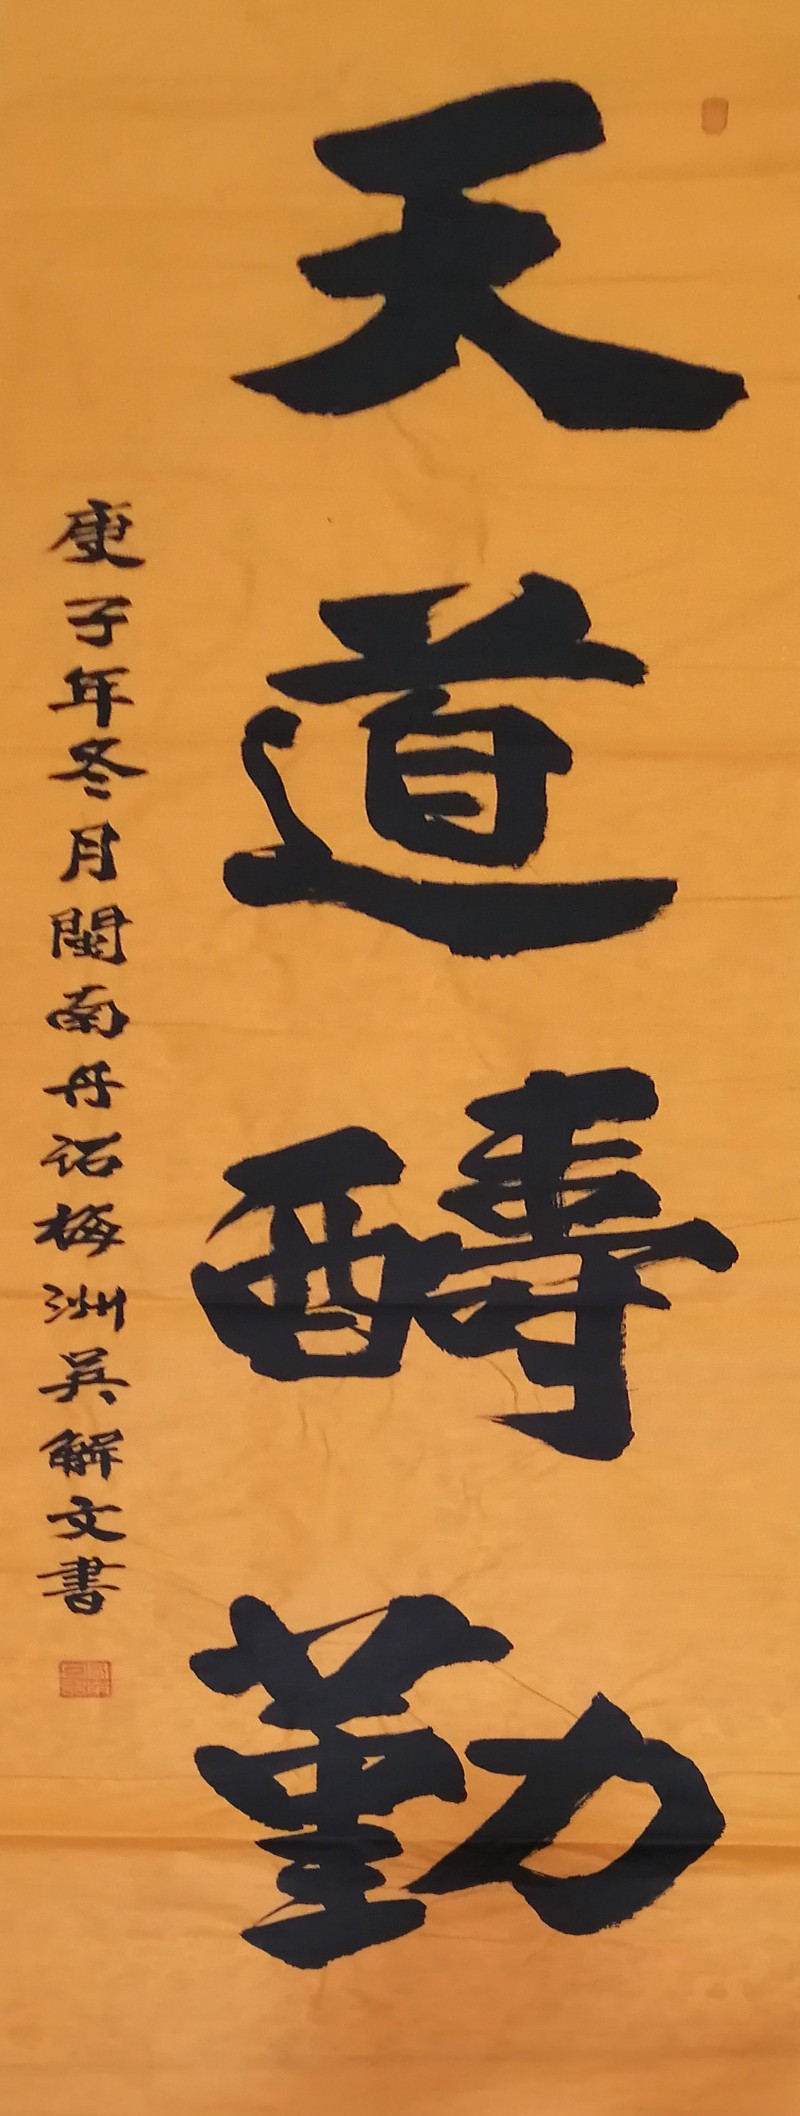 天道酬勤
庚子年冬月閩南丹詔梅洲吳解文書